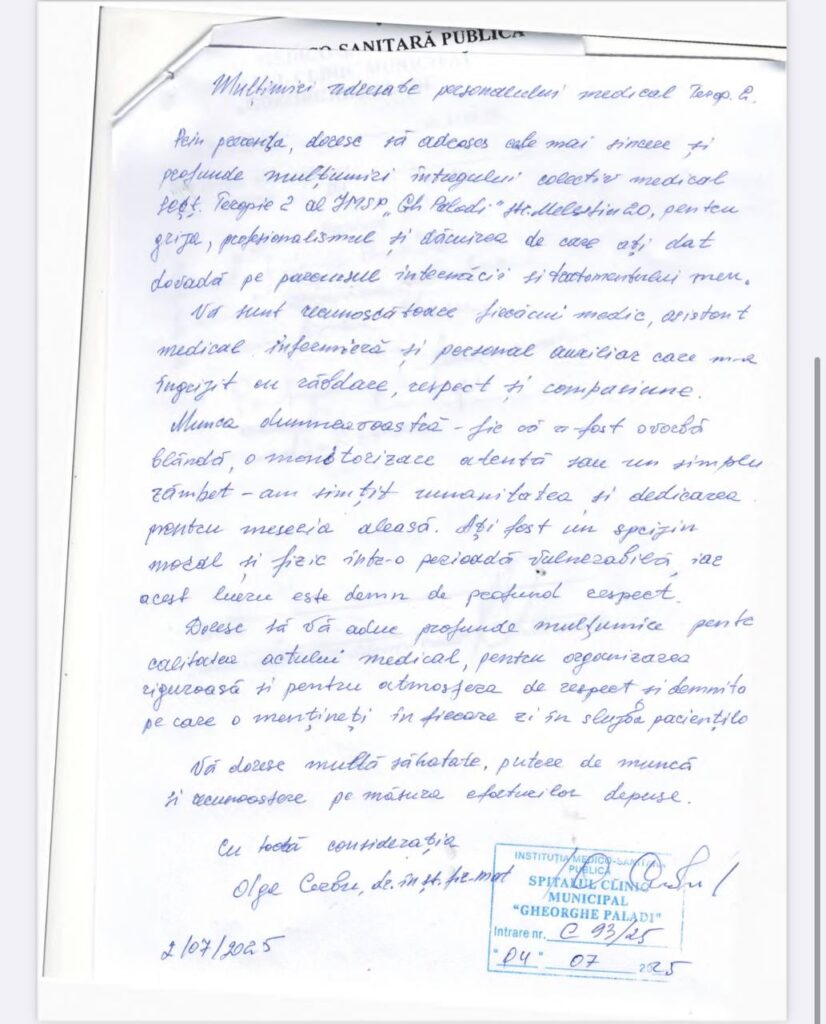 CO-SANITARĂ PUBLICĂ
Mulțimiri adresate personalului medical Terap. 2.
Prin prezenta, doresc să adresez cele mai sincere și
profunde mulțumiri întregului colectiv medical
secț. Terapie 2 al IMSP „Gh Paladi" str. Melestiu 20, pentru
grija, profesionalismul și dăruirea de care ați dat
dovadă pe parcursul internării și tratamentului meu.
Vă sunt recunoscătoare fiecărui medic, asistent
medical, infermieră și personal auxiliar care m-a
îngrijit cu răbdare, respect și compasiune.
Munca dumneavoastră - fie că a fost o vorbă
blândă, o monitorizare atentă sau un simplu
zâmbet - am simțit umanitatea și dedicarea
pentru meseria aleasă. Ați fost un sprijin
moral și fizic într-o perioadă vulnerabilă, iar
acest lucru este demn de profund respect.
Doresc să Vă aduc profunde mulțumire pentr
calitatea actului medical, pentru organizarea
riguroasă și pentru atmosfera de respect și demnita
pe care o mențineți în fiecare zi în slujba pacienților
Vă doresc multă sănatate, putere de muncă
și recunoaștere pe măsura eforturilor depuse.
Cu toată considerația
Olga Corbu, dr. în șt. fiz-mat
INSTITUȚIA MEDICO-SANITARĂ
PUBLICĂ
SPITALUL CLINIC
MUNICIPAL
"GHEORGHE PALADI"
Intrare nr. C 93/25
"04" 07 2025
2/07/2025